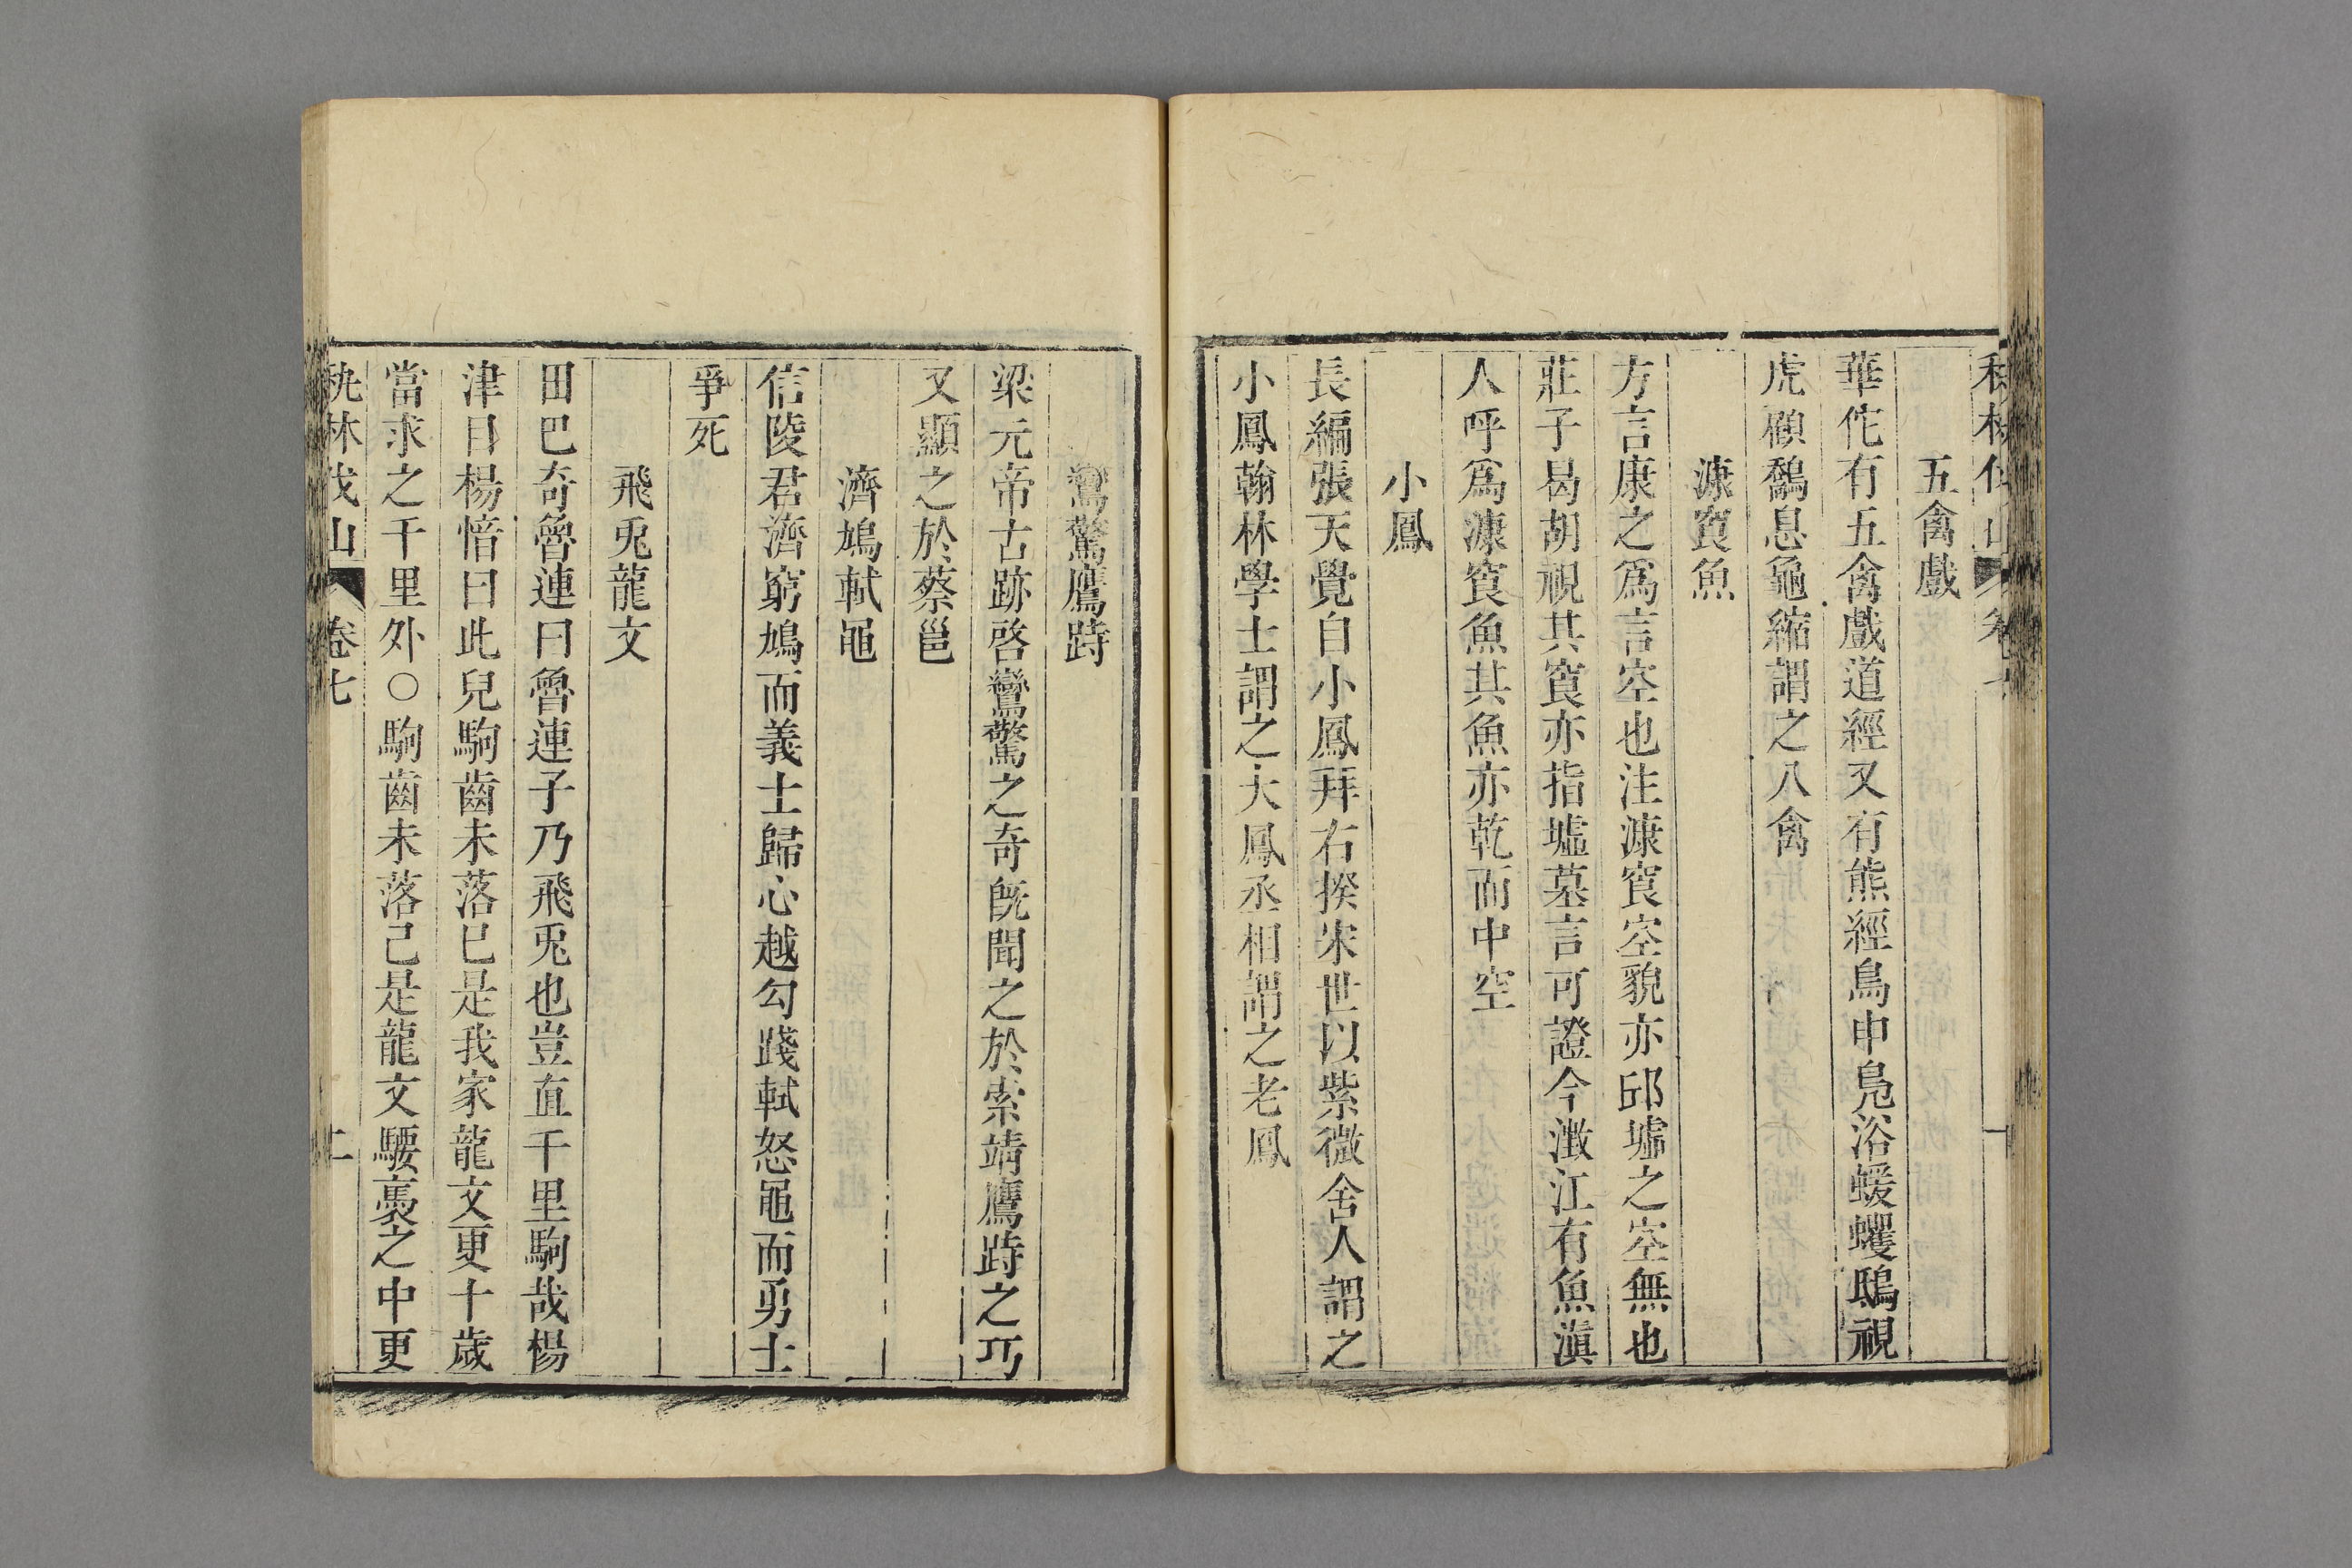 五禽戲
華佗有五禽戲道經又有熊經鳥申鳧浴蝯蠼鴟視
虎顧鷸息龜縮謂之八禽
漮㝗魚
方言康之爲言空也注漮㝗空貌亦邱墟之空無也
莊子曷胡視其㝗亦指墟墓言可證今澂江有魚滇
人呼爲漮㝗魚其魚亦乾而中空
小鳳
長編張天覺自小鳳拜右揆宋世以紫微舍人謂之
小鳳翰林學士謂之大鳳丞相謂之老鳳
鸞驚鷹跱
梁元帝古跡啓鸞驚之奇旣聞之於索靖鷹跱之巧
又顯之於蔡邕
濟鳩軾黽
信陵君濟窮鳩而義士歸心越勾踐軾怒黽而勇士
爭死
飛兎龍文
田巴奇魯連曰魯連子乃飛兎也豈直千里駒哉楊
津目楊愔曰此兒駒齒未落已是我家龍文更十歲
當求之千里外○駒齒未落己是龍文騕褭之中更
秇林伐山 卷七